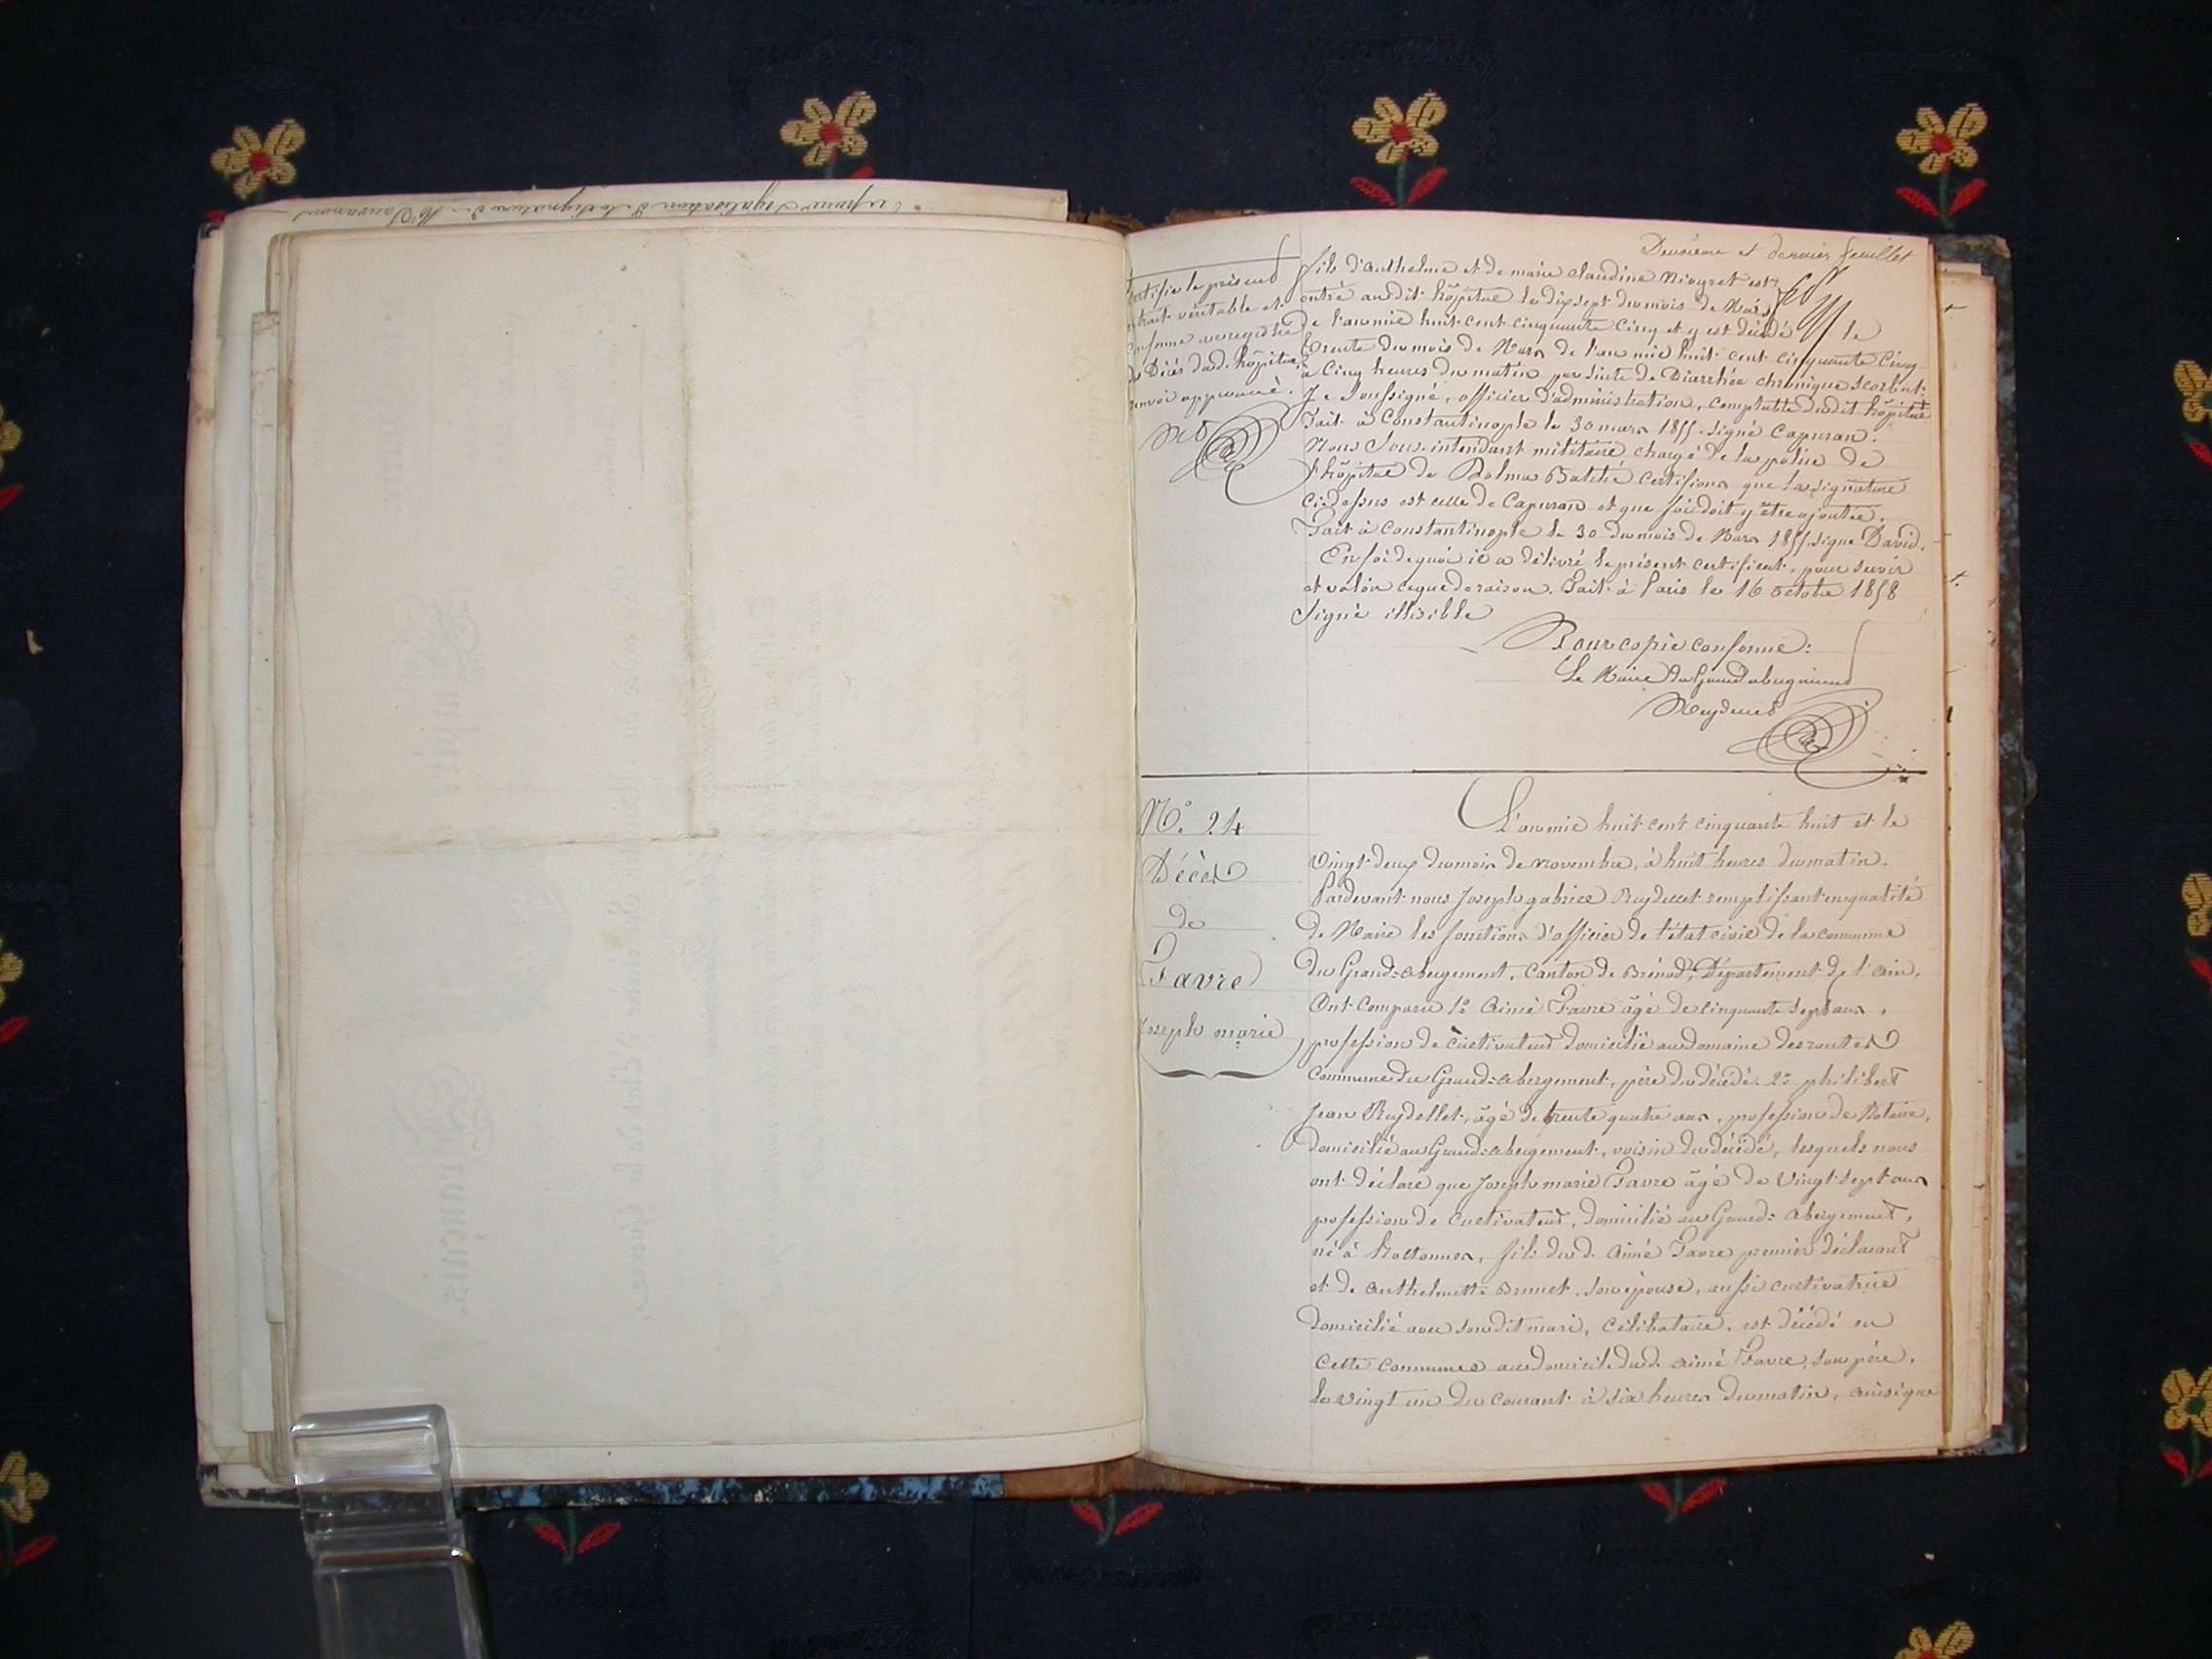 Deuxième et dernier feuillet
certifie le présent
extrait véritable et
conforme au registre
de Décès dud. hôpital
renvoi approuvé.
fils d'anthelme et de marie claudine Niogret est
entré audit hôpital le dix sept du mois de Mars
de l'an mil huit cent cinquante cinq et y est décédé le
trente du mois de Mars de l'an mil huit cent cinquante cinq
à cinq heures du matin par suite de Diarrhée chronique scorbut.
Je soussigné, officier d'administration, comptable dudit hôpital
Fait à Constantinople le 30 mars 1855. signé Capuran.
Nous Sous-intendant militaire chargé de la police de
l'hôpital de Dolma Batché certifions que la signature
ci-dessus est celle de Capuran et que foi doit y être ajoutée.
Fait à Constantinople le 30 du mois de Mars 1855 signé David.
En foi de quoi il a délivré le présent certificat, pour servir
et valoir ce que de raison. Fait à Paris le 16 octobre 1858
signé illisible
Pour copie conforme:
Le Maire du Grand abergement
Reydellet
N.° 24
Décès
de
Favre
Joseph marie
L'an mil huit cent cinquante huit et le
vingt deux du mois de novembre, à huit heures du matin.
Pardevant nous Joseph gabriel Reydellet remplissant en qualité
de Maire les fonctions d'officier de l'état civil de la commune
du Grand-abergement, canton de Brénod, Département de l'ain,
ont comparu 1° aimé Favre âgé de cinquante sept ans,
profession de cultivateur domicilié au domaine des routes
commune du Grand-abergement, père du décédé. 2° philibert
Jean Reydellet, âgé de trente quatre ans, profession de Notaire,
domicilié au Grand-abergement, voisin du décédé, lesquels nous
ont déclaré que Joseph marie Favre âgé de vingt sept ans
profession de cultivateur, domicilié au Grand-abergement,
né à hottonnes, fils dud. aimé Favre premier déclarant
et de anthelmette Brunet, son épouse, aussi cultivatrice
domicilié avec son dit mari, célibataire, est décédé en
cette commune au domicile dud. aimé Favre, son père,
le vingt un du courant à six heures du matin, ainsi que